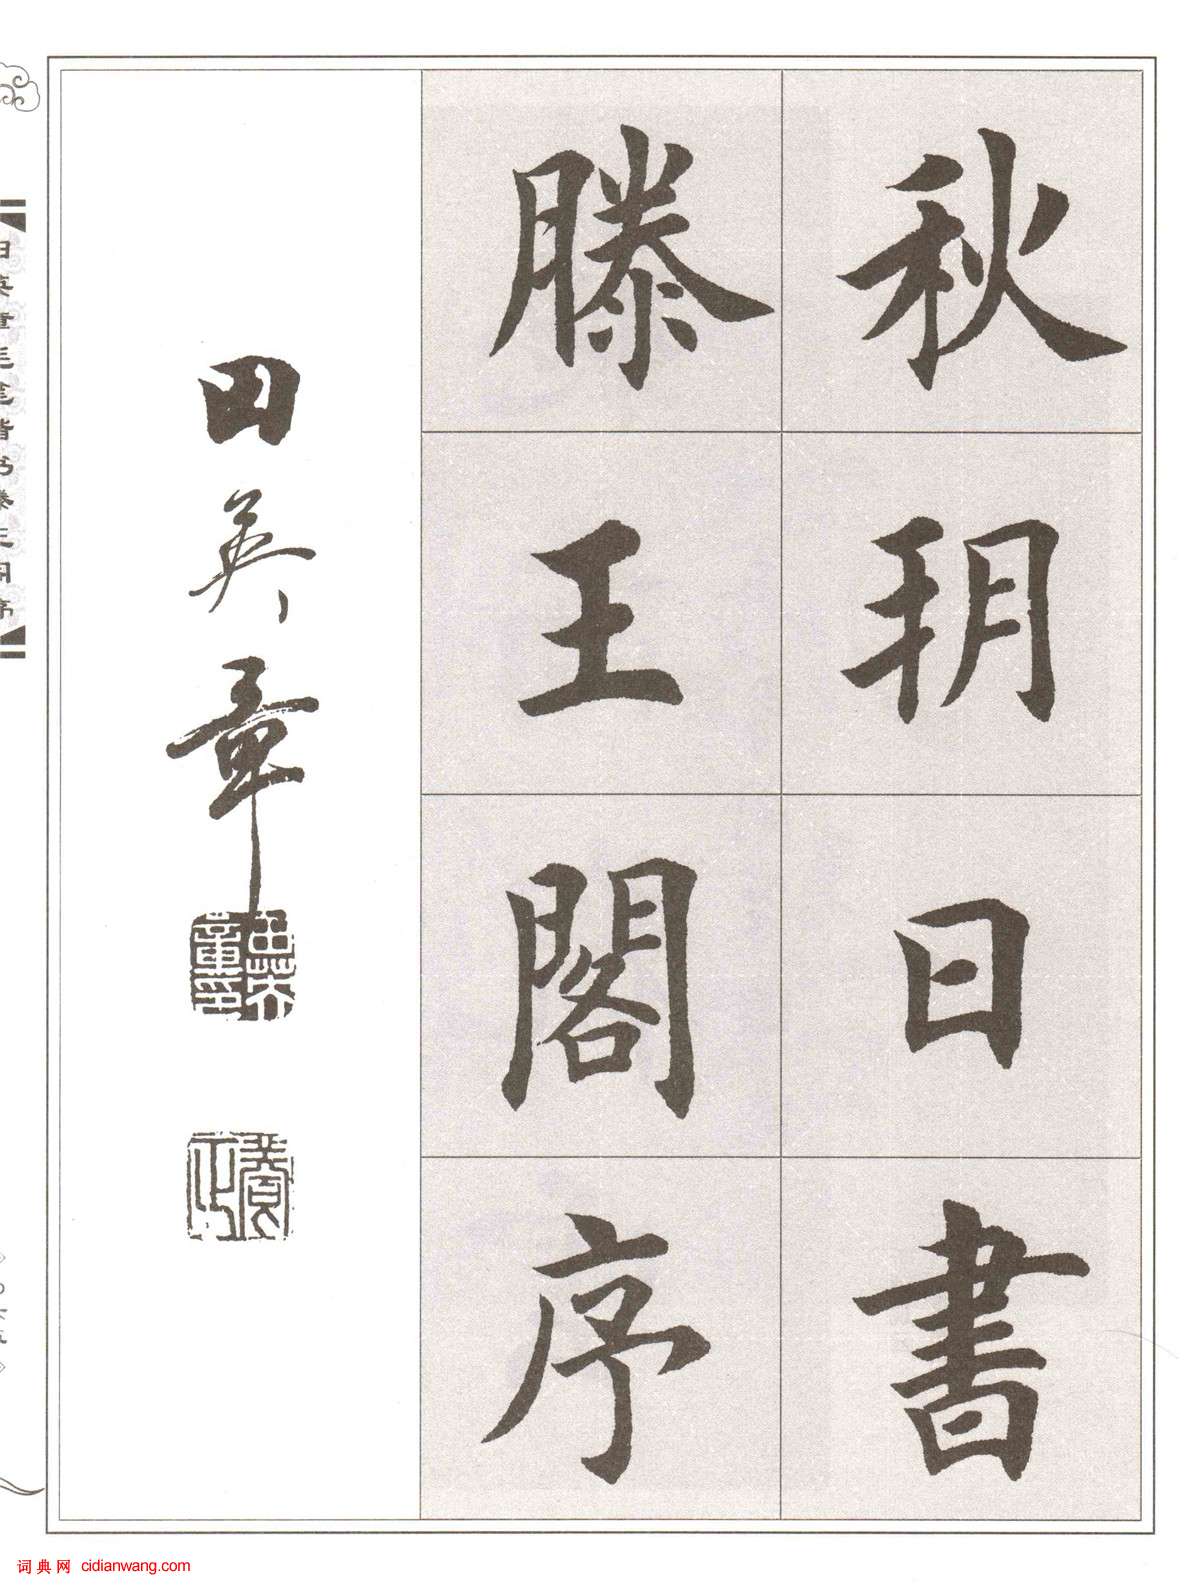 秋玥日書
滕王閣序
田英章
田英章印
田英章毛笔楷书滕王阁序
词典网 cidianwang.com